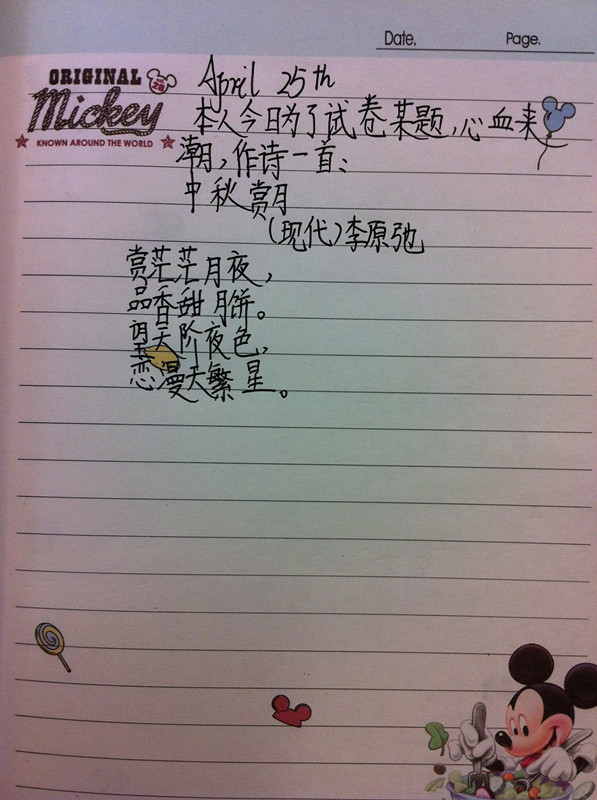 Date.
Page.
ORIGINAL
Mickey
KNOWN AROUND THE WORLD
April 25th
本人今日为了试卷某题,心血来
潮,作诗一首:
中秋赏月
(现代)李原弛
赏茫茫月夜,
品香甜月饼。
望天阶夜色,
恋漫天繁星。